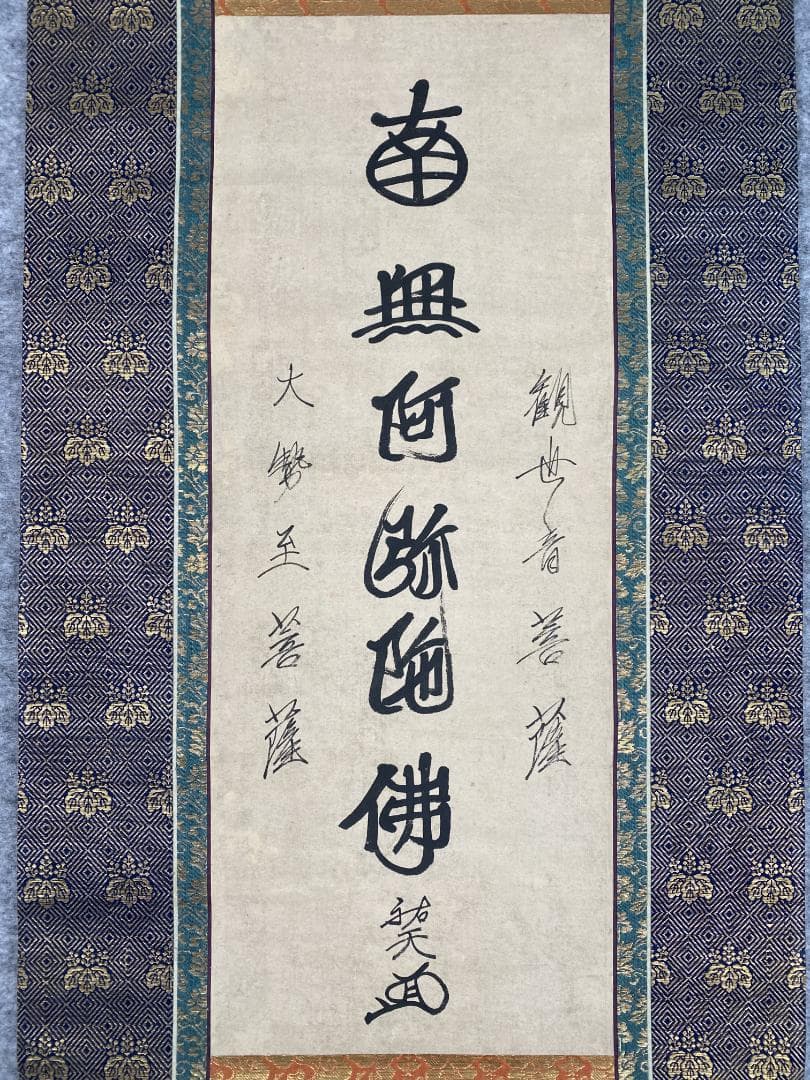 観世音菩薩
南無阿弥陀佛
祐天
大勢至菩薩